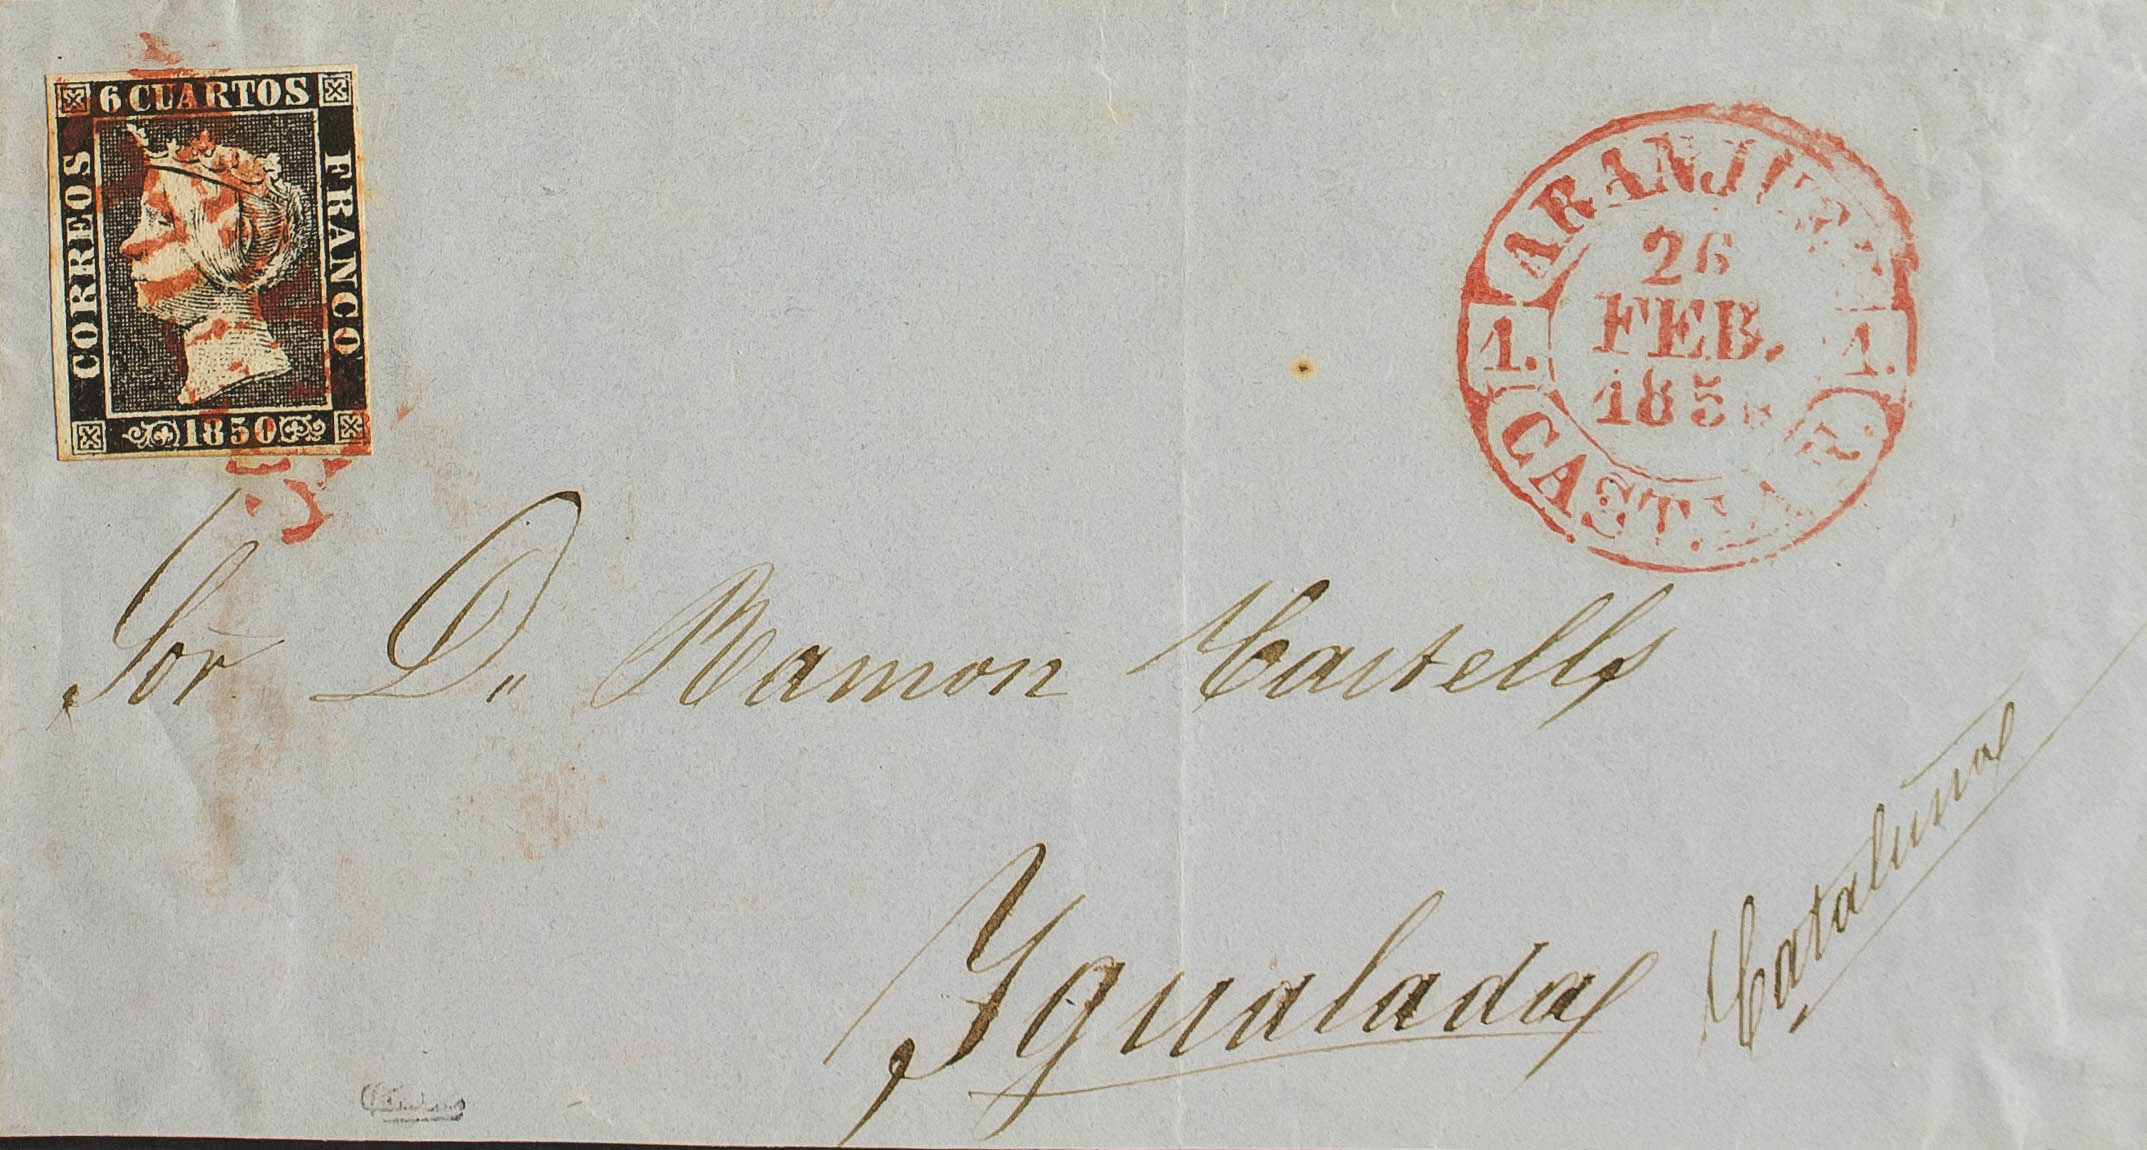 6 CUARTOS
CORREOS
FRANCO
1850
ARANJUEZ
26
FEB.
185
1. 1.
CAST.
Sor D. Ramon Castells
Ygualada
Cataluña